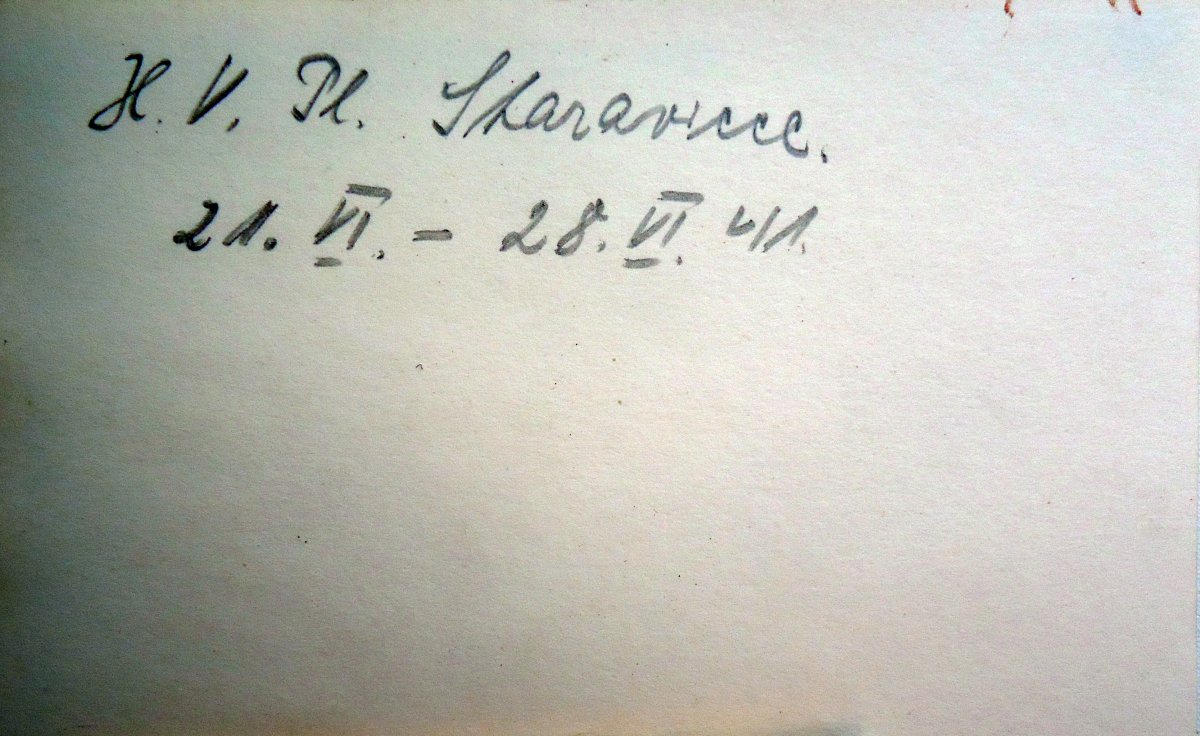 H. V. Pl.
21. VI. - 28. VI. 41.